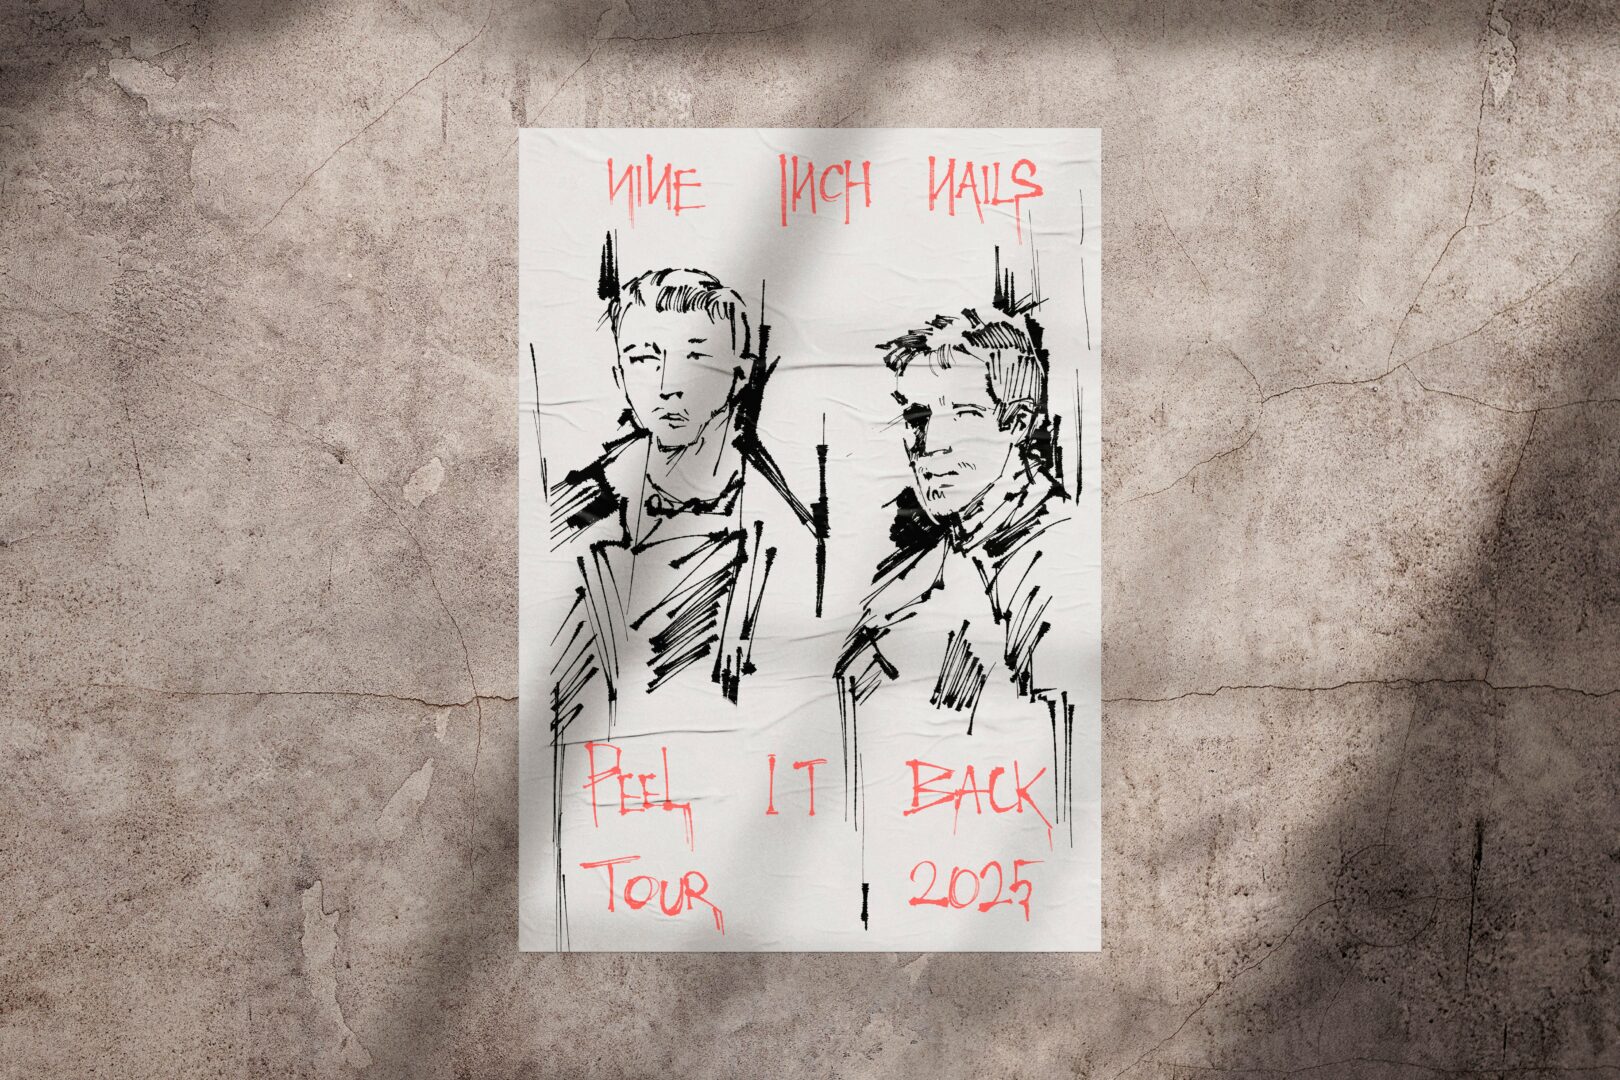 NINE INCH NAILS
PEEL IT BACK
TOUR 2025